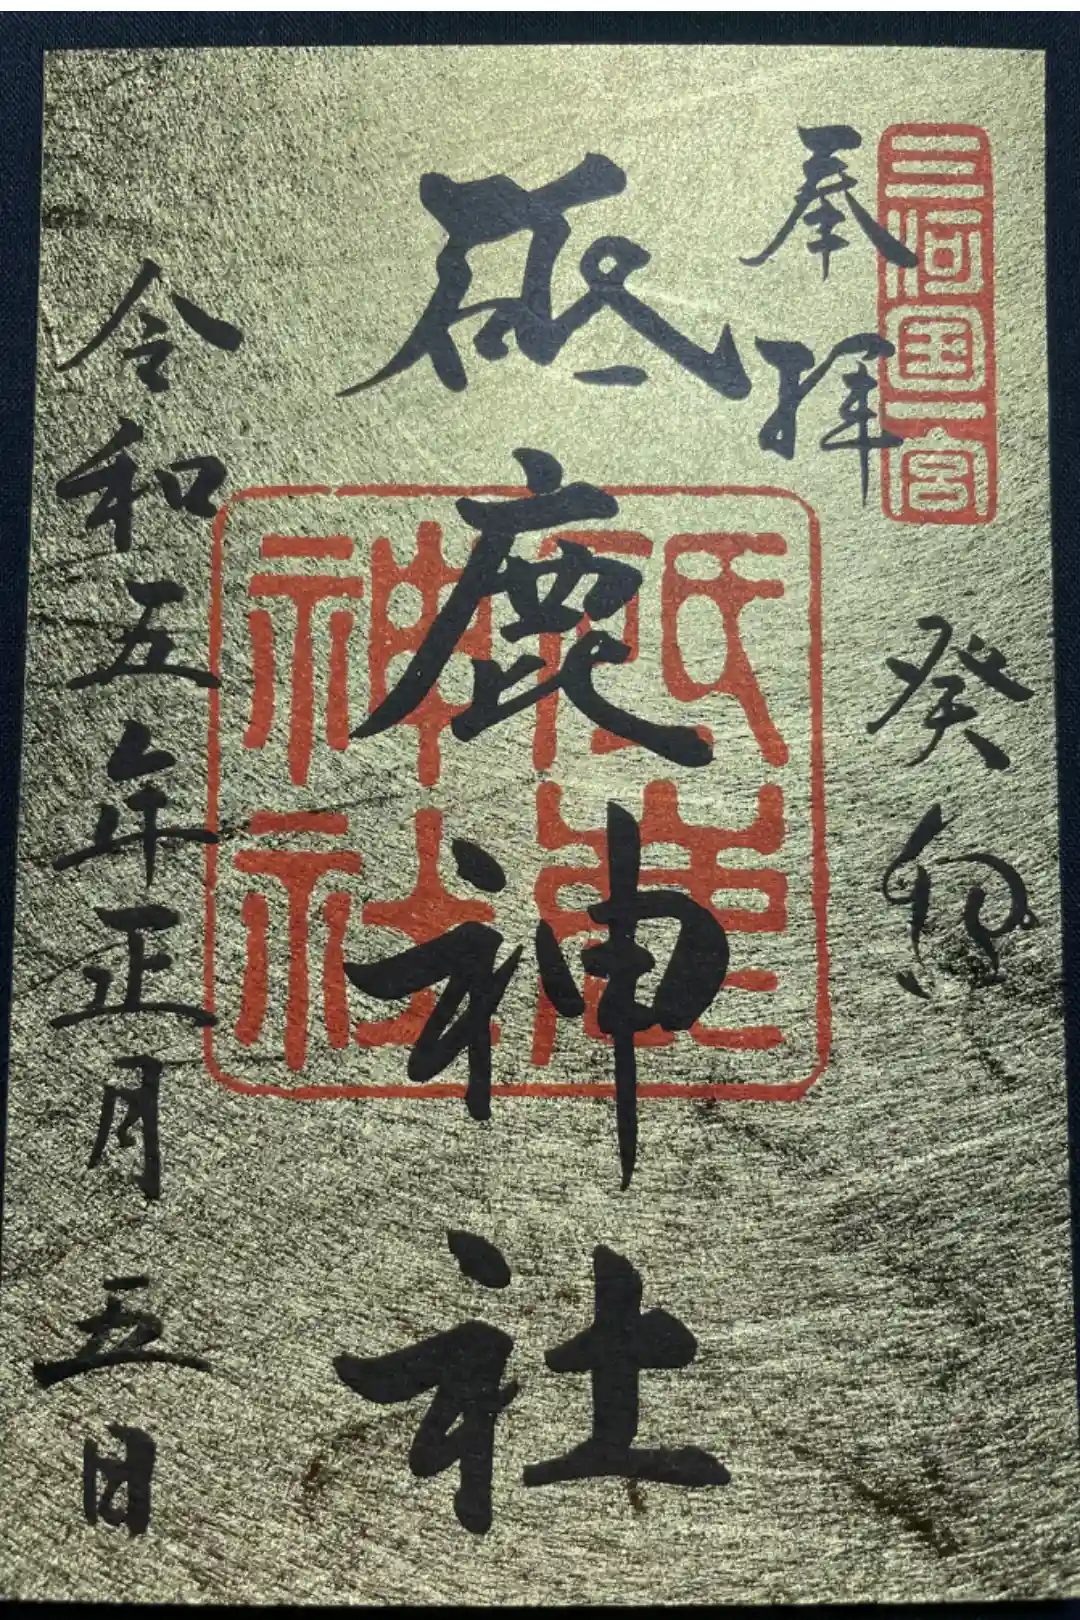 三河国一宮
奉拝
癸卯
砥鹿神社
砥鹿神社
令和五年正月五日